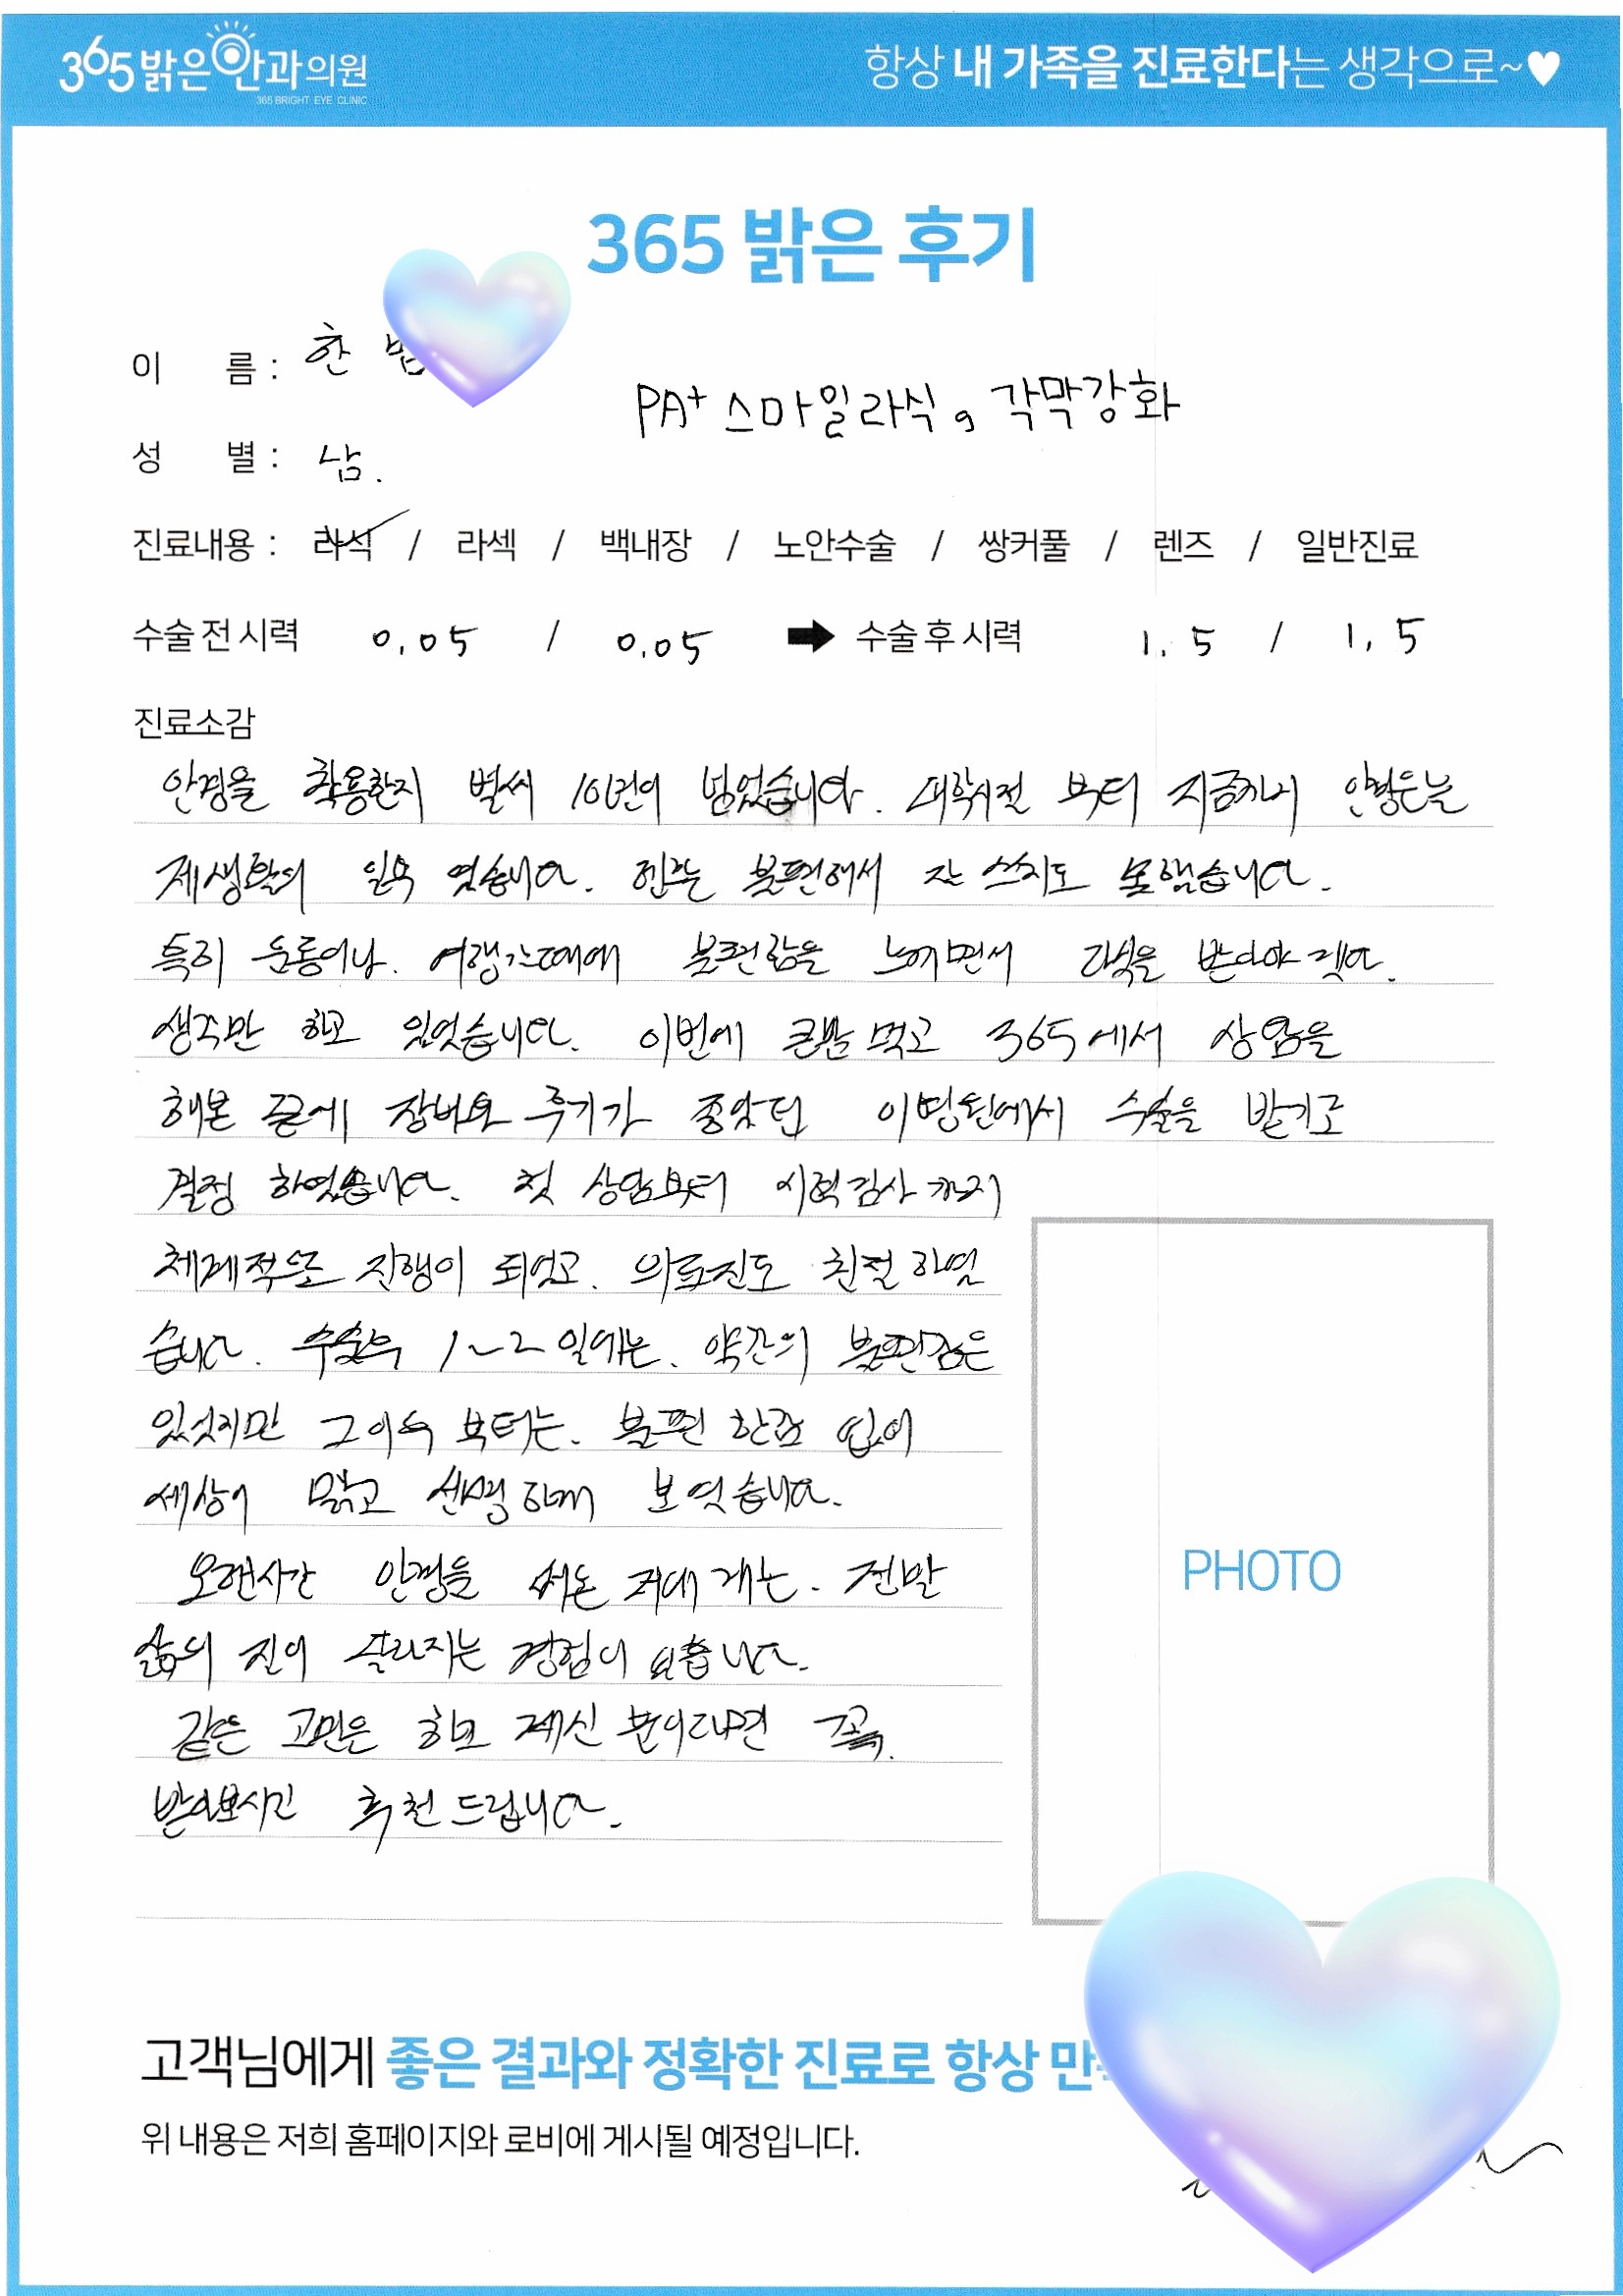 365밝은안과의원
365 BRIGHT EYE CLINIC
항상 내 가족을 진료한다는 생각으로~♥
365 밝은 후기
이 름 : 한
PA+ 스마일라식, 각막강화
성 별 : 남.
진료내용 : 라식 / 라섹 / 백내장 / 노안수술 / 쌍커풀 / 렌즈 / 일반진료
수술 전 시력 0.05 / 0.05 ➡ 수술 후 시력 1.5 / 1.5
진료소감
안경을 착용한지 벌써 10년이 넘었습니다. 대학시절 부터 지금까지 안경은늘
제생활의 일부 였습니다. 렌즈는 불편해서 잘 쓰지도 못했습니다.
특히 운동이나. 여행갈때에 불편함을 느끼면서 라식을 받아야 겠다.
생각만 하고 있었습니다. 이번에 큰맘 먹고 365에서 상담을
해본 끝에 장비와 후기가 좋았던 이병원에서 수술을 받기로
결정 하였습니다. 첫 상담부터 시력검사 까지
체계적으로 진행이 되었고. 의료진도 친절 하였
습니다. 수술후 1~2일에는. 약간의 불편감은
있었지만 그이후 부터는. 불편 한점 없이
세상이 맑고 선명하게 보였습니다.
오랜시간 안경을 써온 저에게는. 정말
삶의 질이 달라지는 경험이였습니다.
같은 고민은 하고 계신 분이라면 꼭.
받아보시길 추천드립니다.
PHOTO
고객님에게 좋은 결과와 정확한 진료로 항상
위 내용은 저희 홈페이지와 로비에 게시될 예정입니다.